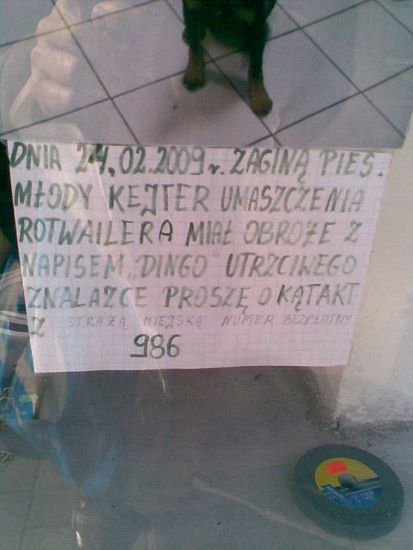 DNIA 24.02.2009r. ZAGINĄ PIES.
MŁODY KEJTER UMASZCZENIA
ROTWAILERA MIAŁ OBROŻE Z
NAPISEM „DINGO" UTRZCIWEGO
ZNALAZCE PROSZĘ O KĄTAKT
Z STRAŻĄ MIEJSKĄ NUMER BEZPŁATNY
986